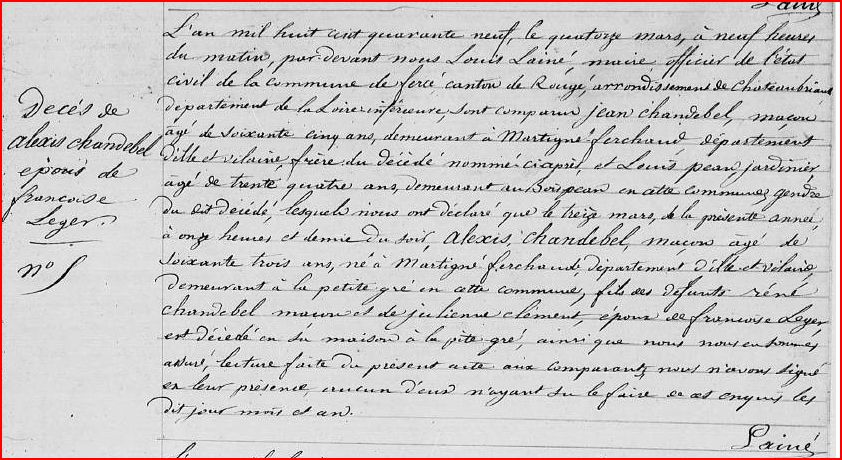 Lainé
L'an mil huit cent quarante neuf, le quatorze mars, à neuf heures
du matin, par devant nous Louis Lainé, maire officier de l'état
civil de la commune de fercé canton de Rougé, arrondissement de Chateaubriant
département de la Loire inférieure, sont comparus jean chandebel, maçon
âgé de soixante cinq ans, demeurant à Martigné-ferchaud département
d'ille et vilaine frère du décédé nommé ci après, et Louis pean jardinier
âgé de trente quatre ans, demeurant au Boispean en cette commune, gendre
du dit décédé, lesquels nous ont déclaré que le treize mars, de la présente année,
à onze heures et demie du soir, alexis, chandebel, maçon agé de
soixante trois ans, né à Martigné ferchaud, département d'ille et vilaine,
demeurant à la petite gré en cette commune, fils des défunts réné
chandebel maçon et de julienne clément, époux de francoise Leger,
est décédé en sa maison à la ptite gré, ainsi que nous nous en sommes
assuré, lecture faite du present acte aux comparants, nous n'avons signé
en leur présence, aucun d'eux n'ayant su le faire de ces enquis les
dit jour mois et an.
Lainé
Decés de
alexis chandebel
epouis de
francoise
Léger.
n° 5